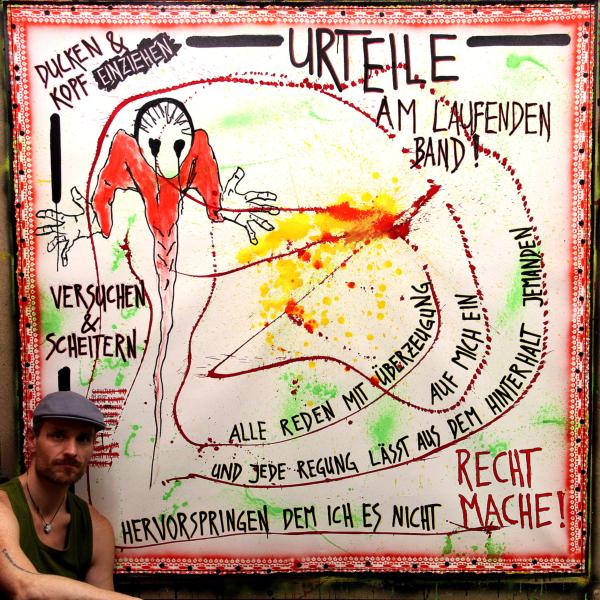 DUCKEN &
KOPF EINZIEHEN
URTEILE
AM LAUFENDEN
BAND!
VERSUCHEN
&
SCHEITERN
ALLE REDEN MIT ÜBERZEUGUNG
AUF MICH EIN
UND JEDE REGUNG LÄSST AUS DEM HINTERHALT JEMANDEN
HERVORSPRINGEN DEM ICH ES NICHT
RECHT
MACHE!